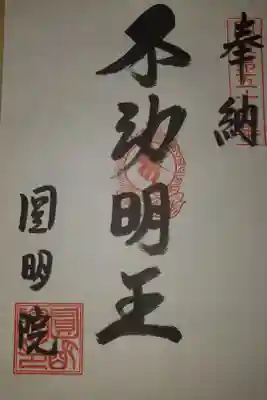 奉納
不動明王
圓明院